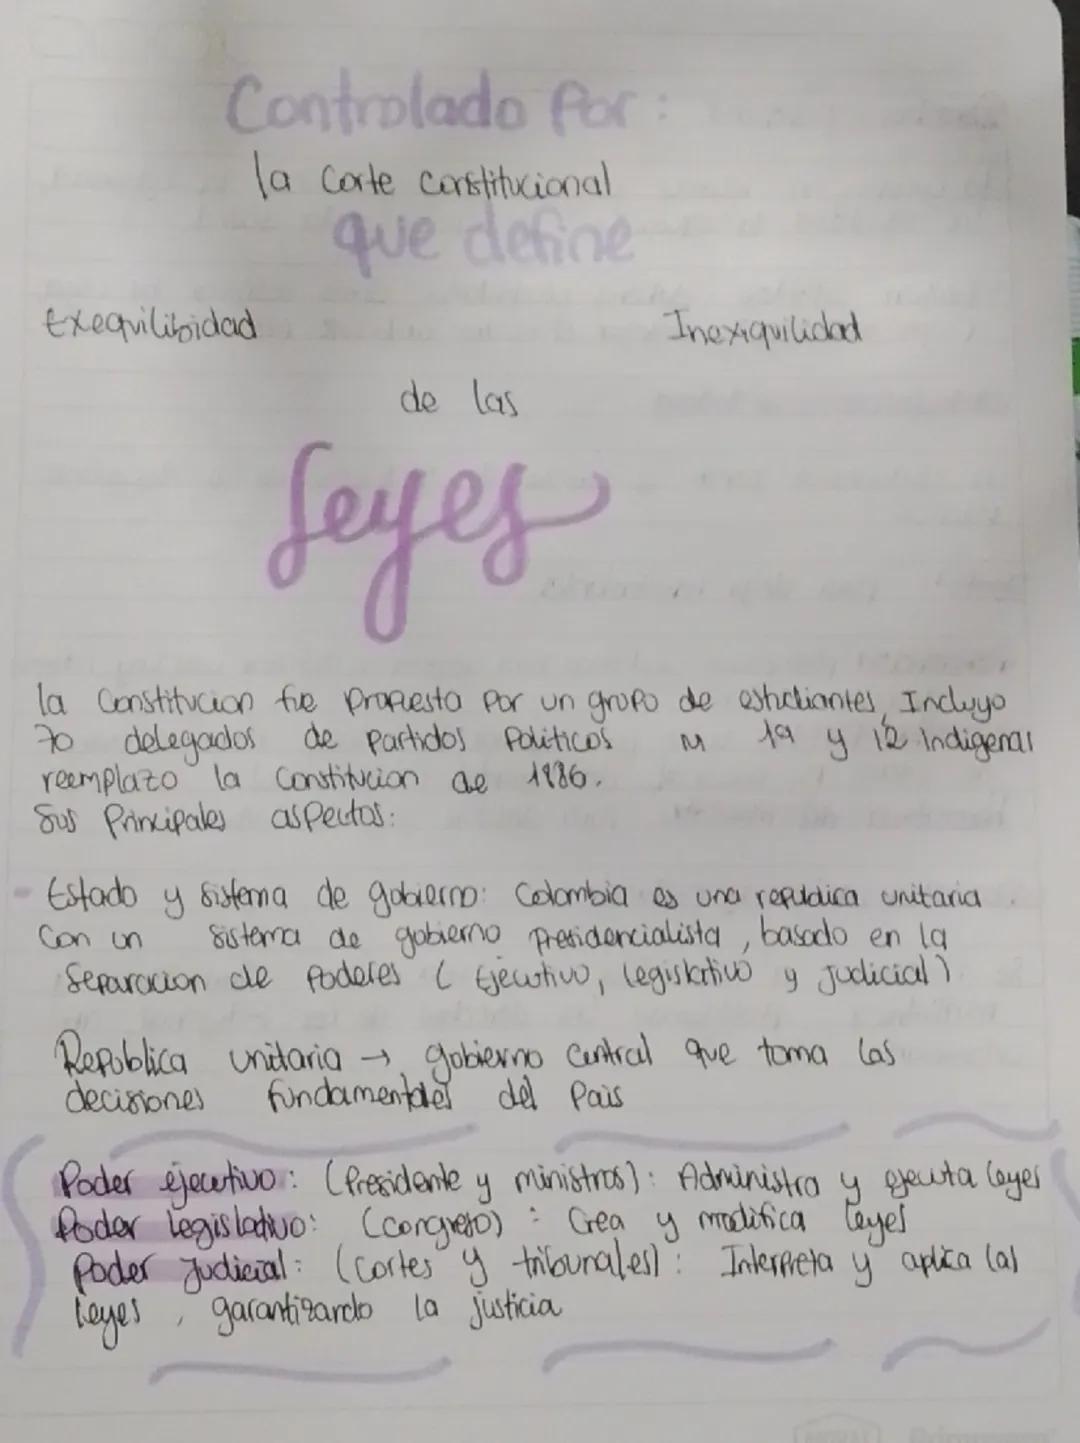 Controlado Por:
la Corte Constitucional
que define
Exequilibidad Inexiquilidad
de las
Leyes
la Constitucion fue Propuesta Por un grupo de estudiantes, Incluyo
70 delegados de Partidos Politicos M 19 y 12 Indigenas
reemplazo la Constitucion de 1886.
Sus Principales aspectos:
- Estado y Sistema de gobierno: Colombia es una republica unitaria
Con un Sistema de gobierno Presidencialista, basado en la
Separacion de Poderes (Ejecutivo, legislativo y Judicial)
Republica unitaria → gobierno Central que toma las
decisiones fundamentales del Pais
Poder ejecutivo: (Presidente y ministros): Administra y ejecuta leyes
Poder Legislativo: (congreso): Crea y modifica leyes
Poder Judicial: (Cortes y tribunales): Interpreta y aplica las
leyes, garantizando la justicia